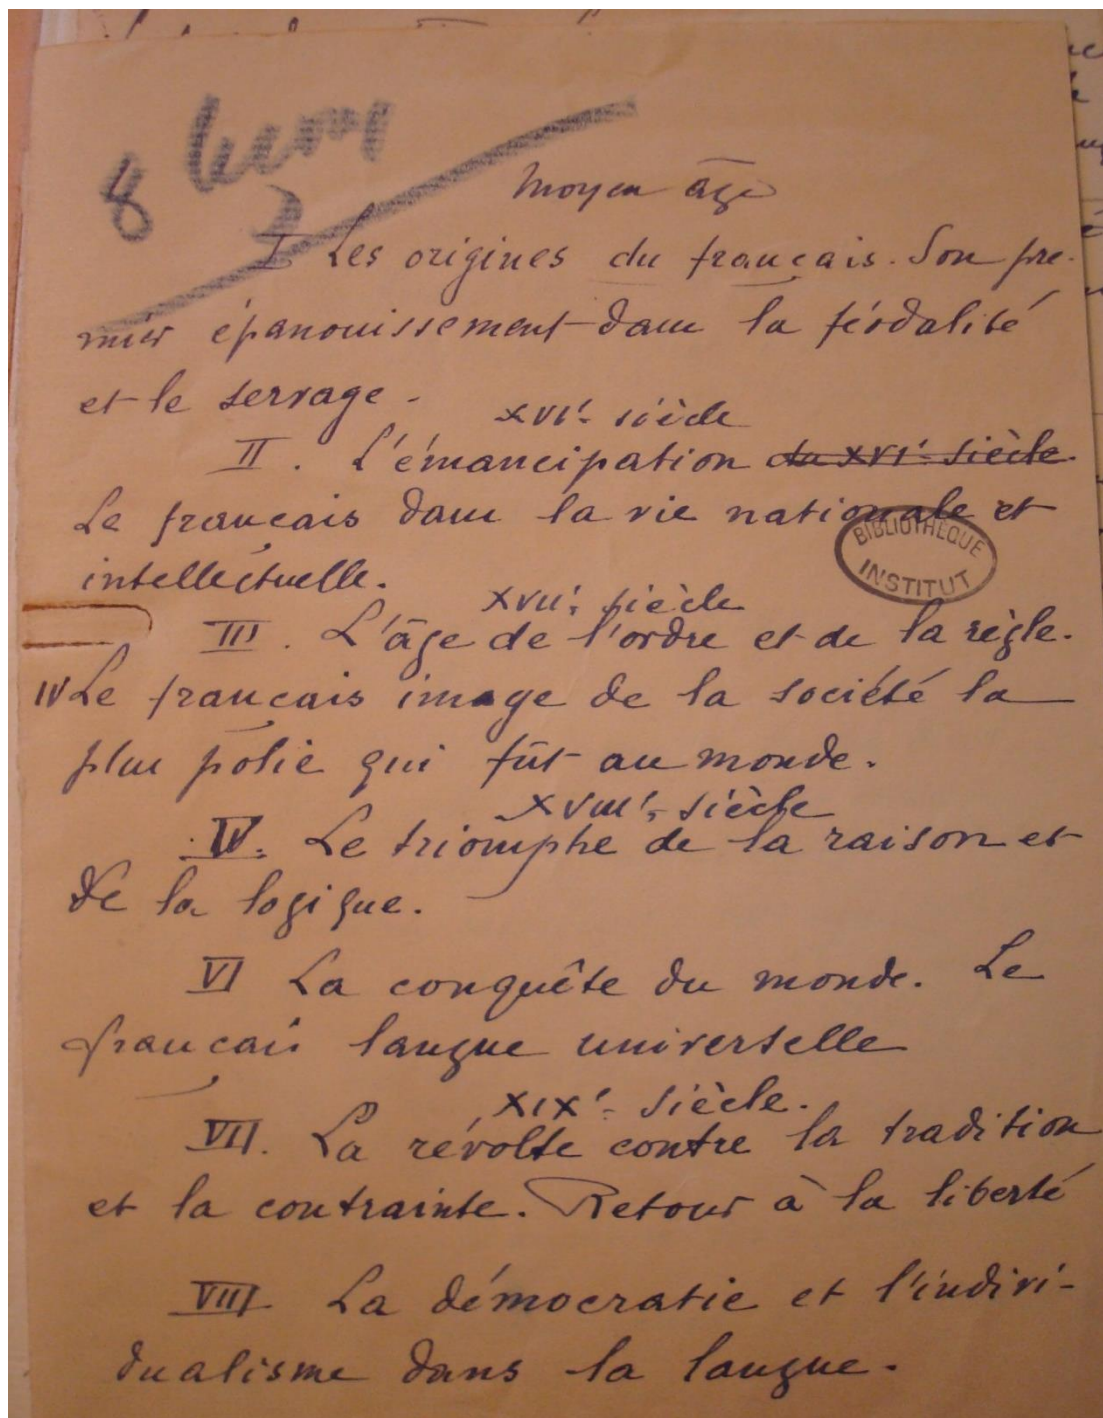 8
Moyen âge
I Les origines du français. Son pre-
mier épanouissement dans la féodalité
et le servage.
XVIe siècle
II. L'émancipation du XVIe siècle.
Le français dans la vie nationale et
BIBLIOTHÈQUE
INSTITUT
intellectuelle.
XVIIe siècle
III. L'âge de l'ordre et de la règle.
IV Le français image de la société la
plus polie qui fût au monde.
XVIIIe siècle
V. Le triomphe de la raison et
de la logique.
VI La conquête du monde. Le
français langue universelle
XIXe siècle.
VII. La révolte contre la tradition
et la contrainte. Retour à la liberté
VIII La démocratie et l'indivi-
dualisme dans la langue.